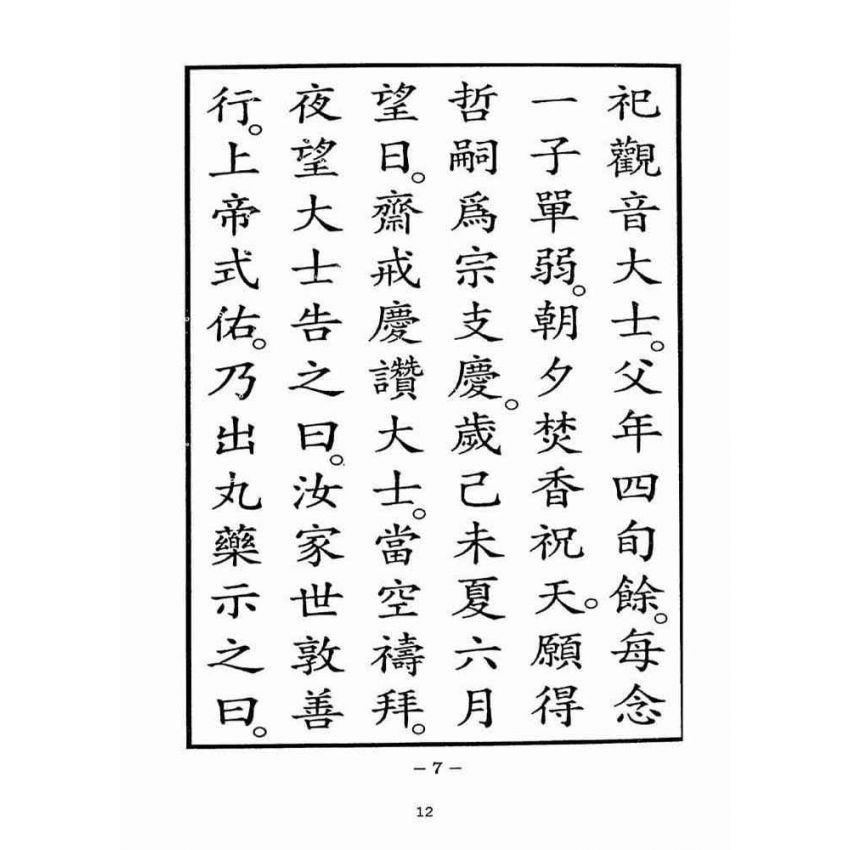 祀觀音大士。父年四旬餘。每念
一子單弱。朝夕焚香祝天。願得
哲嗣爲宗支慶。歲己未夏六月
望日。齋戒慶讚大士。當空禱拜。
夜望大士告之曰。汝家世敦善
行。上帝式佑。乃出丸藥示之曰。
－7－
12